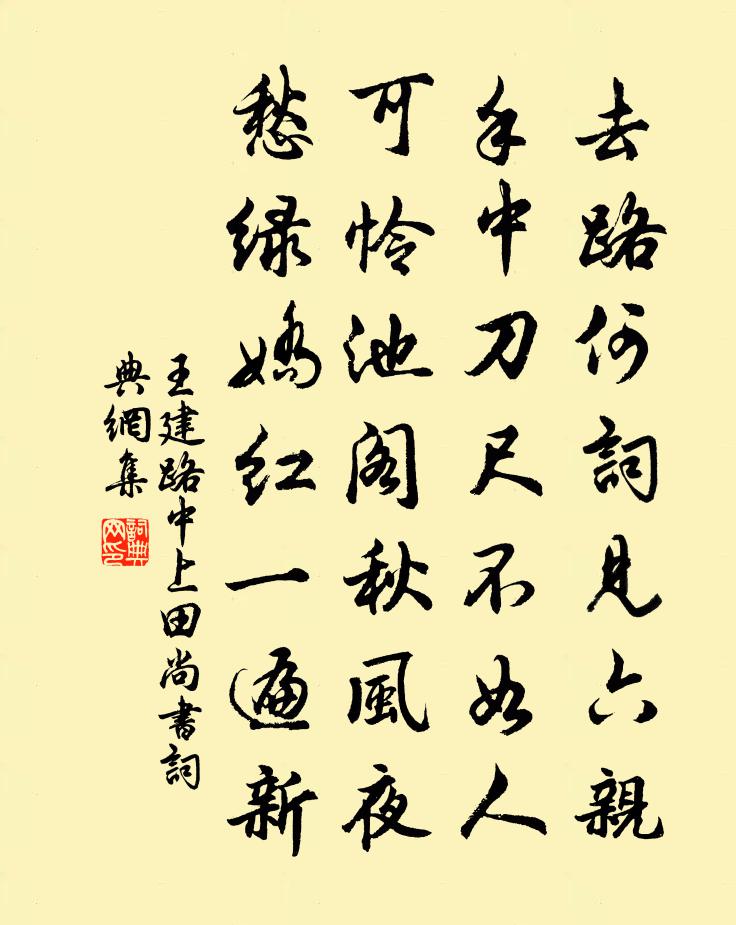 去路何詞見六親
手中刀尺不如人
可怜池阁秋風夜
愁緑嬌紅一遍新
王建路中上田尚書詞
典網集
詞典網印